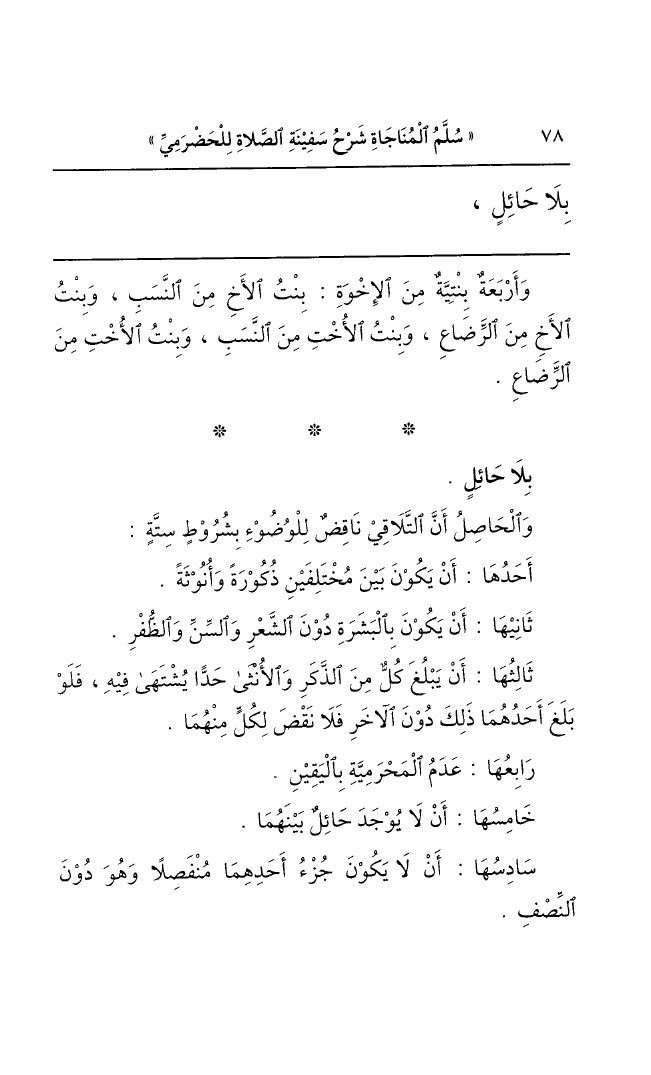 ٧٨ « سُلَّمُ ٱلْمُنَاجَاةِ شَرْحُ سَفِيْنَةِ ٱلصَّلَاةِ لِلْحَضْرَمِيِّ »
بِلَا حَائِلٍ ،
وَأَرْبَعَةٌ بِنْتِيَّةٌ مِنَ ٱلإِخْوَةِ : بِنْتُ ٱلأَخِ مِنَ ٱلنَّسَبِ ، وَبِنْتُ
ٱلأَخِ مِنَ ٱلرَّضَاعِ ، وَبِنْتُ ٱلأُخْتِ مِنَ ٱلنَّسَبِ ، وَبِنْتُ ٱلأُخْتِ مِنَ
ٱلرَّضَاعِ .
* * *
بِلَا حَائِلٍ .
وَٱلْحَاصِلُ أَنَّ ٱلتَّلَاقِيْ نَاقِضٌ لِلْوُضُوْءِ بِشُرُوْطٍ سِتَّةٍ :
أَحَدُهَا : أَنْ يَكُوْنَ بَيْنَ مُخْتَلِفَيْنِ ذُكُوْرَةً وَأُنُوْثَةً .
ثَانِيْهَا : أَنْ يَكُوْنَ بِٱلْبَشَرَةِ دُوْنَ ٱلشَّعْرِ وَٱلسِّنِّ وَٱلظُّفْرِ .
ثَالِثُهَا : أَنْ يَبْلُغَ كُلٌّ مِنَ ٱلذَّكَرِ وَٱلأُنْثَىٰ حَدًّا يُشْتَهَىٰ فِيْهِ ، فَلَوْ
بَلَغَ أَحَدُهُمَا ذَلِكَ دُوْنَ ٱلآخَرِ فَلَا نَقْضَ لِكُلٍّ مِنْهُمَا .
رَابِعُهَا : عَدَمُ ٱلْمَحْرَمِيَّةِ بِٱلْيَقِيْنِ .
خَامِسُهَا : أَنْ لَا يُوْجَدَ حَائِلٌ بَيْنَهُمَا .
سَادِسُهَا : أَنْ لَا يَكُوْنَ جُزْءُ أَحَدِهِمَا مُنْفَصِلًا وَهُوَ دُوْنَ
ٱلنِّصْفِ .